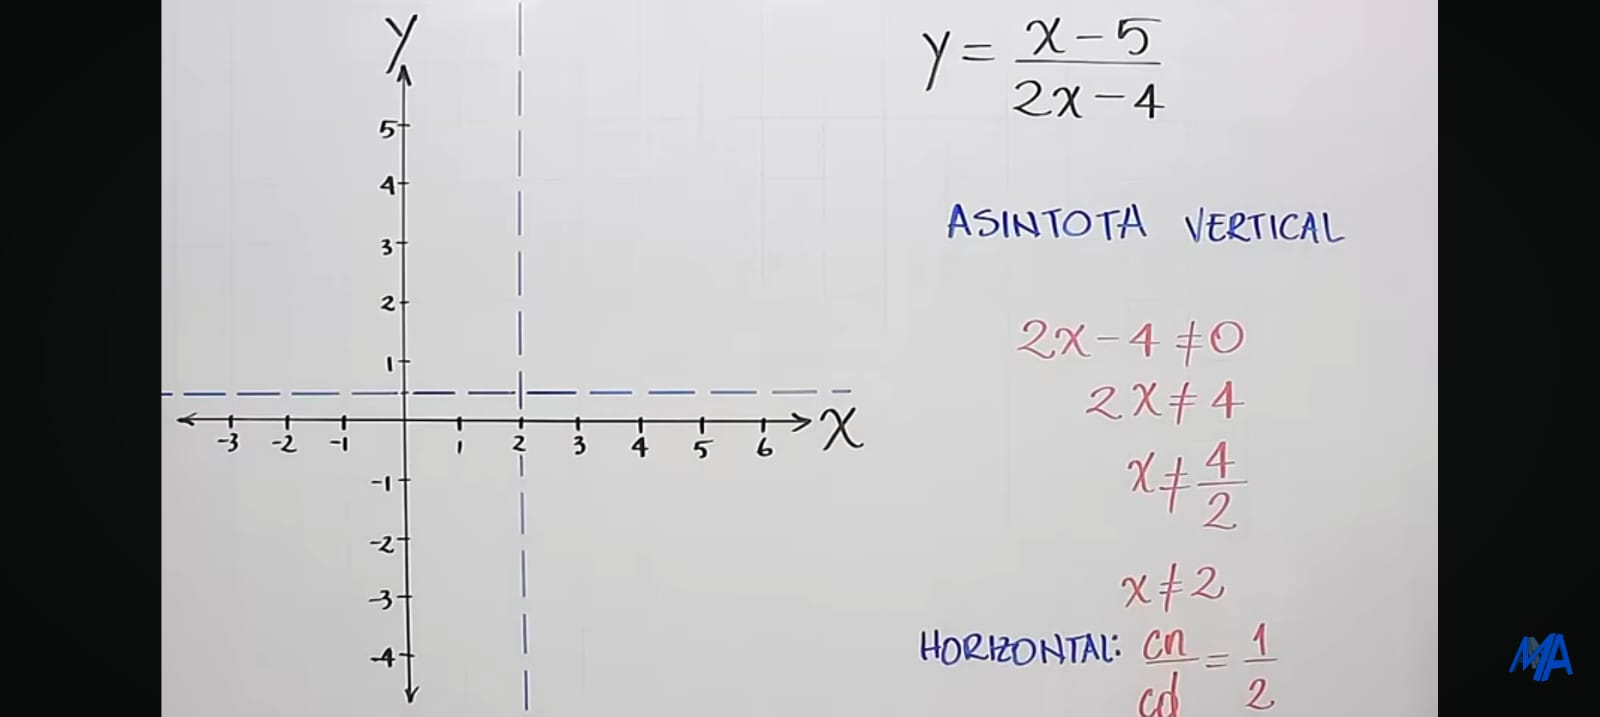 y
5
4
3
2
1
-3 -2 -1 1 2 3 4 5 6 x
-1
-2
-3
-4
y = x - 5
2x - 4
ASINTOTA VERTICAL
2x - 4 ≠ 0
2x ≠ 4
x ≠ 4
2
x ≠ 2
HORIZONTAL: cn = 1
cd 2
MA